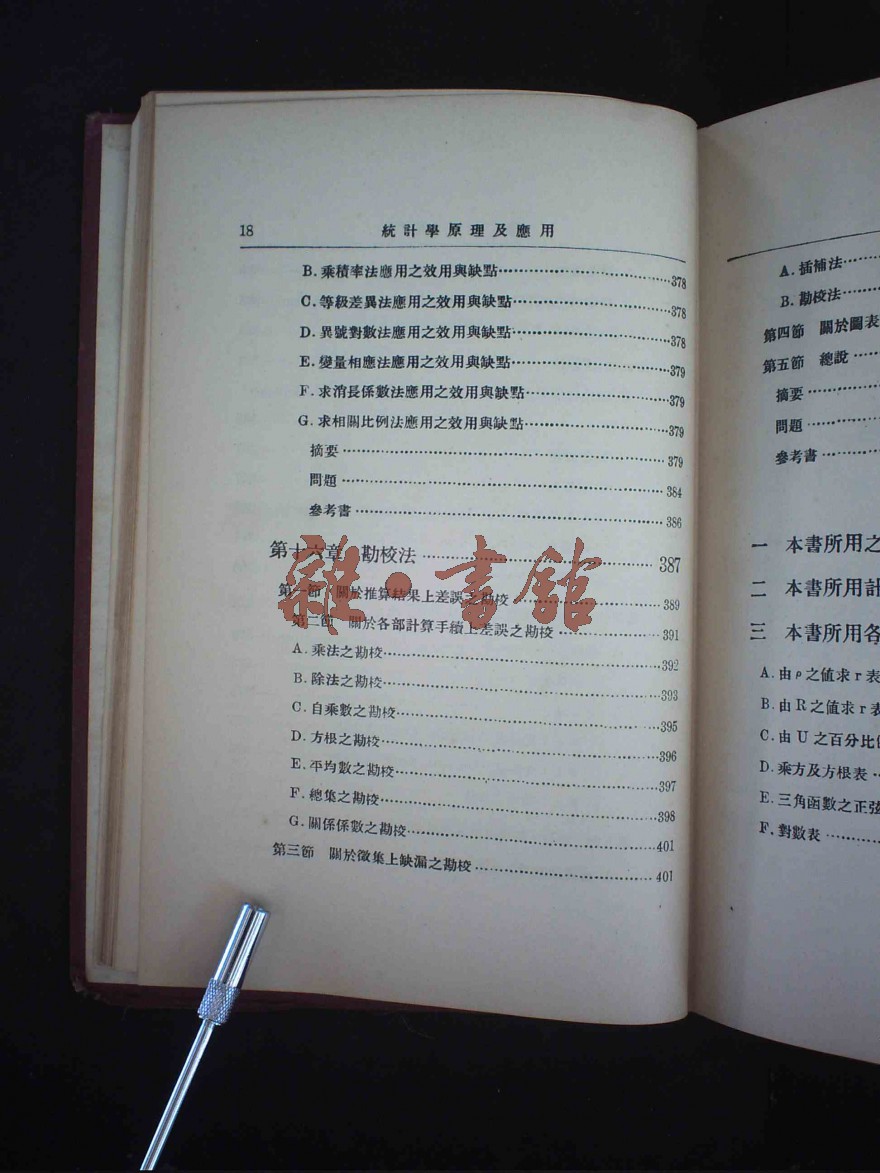 18 統計學原理及應用
B. 乘積率法應用之效用與缺點……378
C. 等級差異法應用之效用與缺點……378
D. 異號對數法應用之效用與缺點……378
E. 變量相應法應用之效用與缺點……379
F. 求消長係數法應用之效用與缺點……379
G. 求相關比例法應用之效用與缺點……379
摘要……379
問題……384
參考書……386
第十六章 勘校法……387
第一節 關於推算結果上差誤之勘校……389
第二節 關於各部計算手續上差誤之勘校……391
A. 乘法之勘校……392
B. 除法之勘校……393
C. 自乘數之勘校……395
D. 方根之勘校……396
E. 平均數之勘校……397
F. 總集之勘校……398
G. 關係係數之勘校……401
第三節 關於徵集上缺漏之勘校……401
雜·書館
A. 插補法……
B. 勘校法……
第四節 關於圖表
第五節 總說……
摘要……
問題……
參考書……
一 本書所用之
二 本書所用計
三 本書所用各
A. 由 ρ 之値求 r 表
B. 由 R 之値求 r 表
C. 由 U 之百分比
D. 乘方及方根表
E. 三角函數之正弦
F. 對數表……